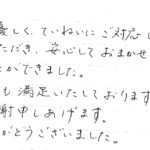 優しく、ていねいにご対応し
ただき、安心しておまかせ
とができました。
も満足いたしております
謝申しあげます。
がとうございました。